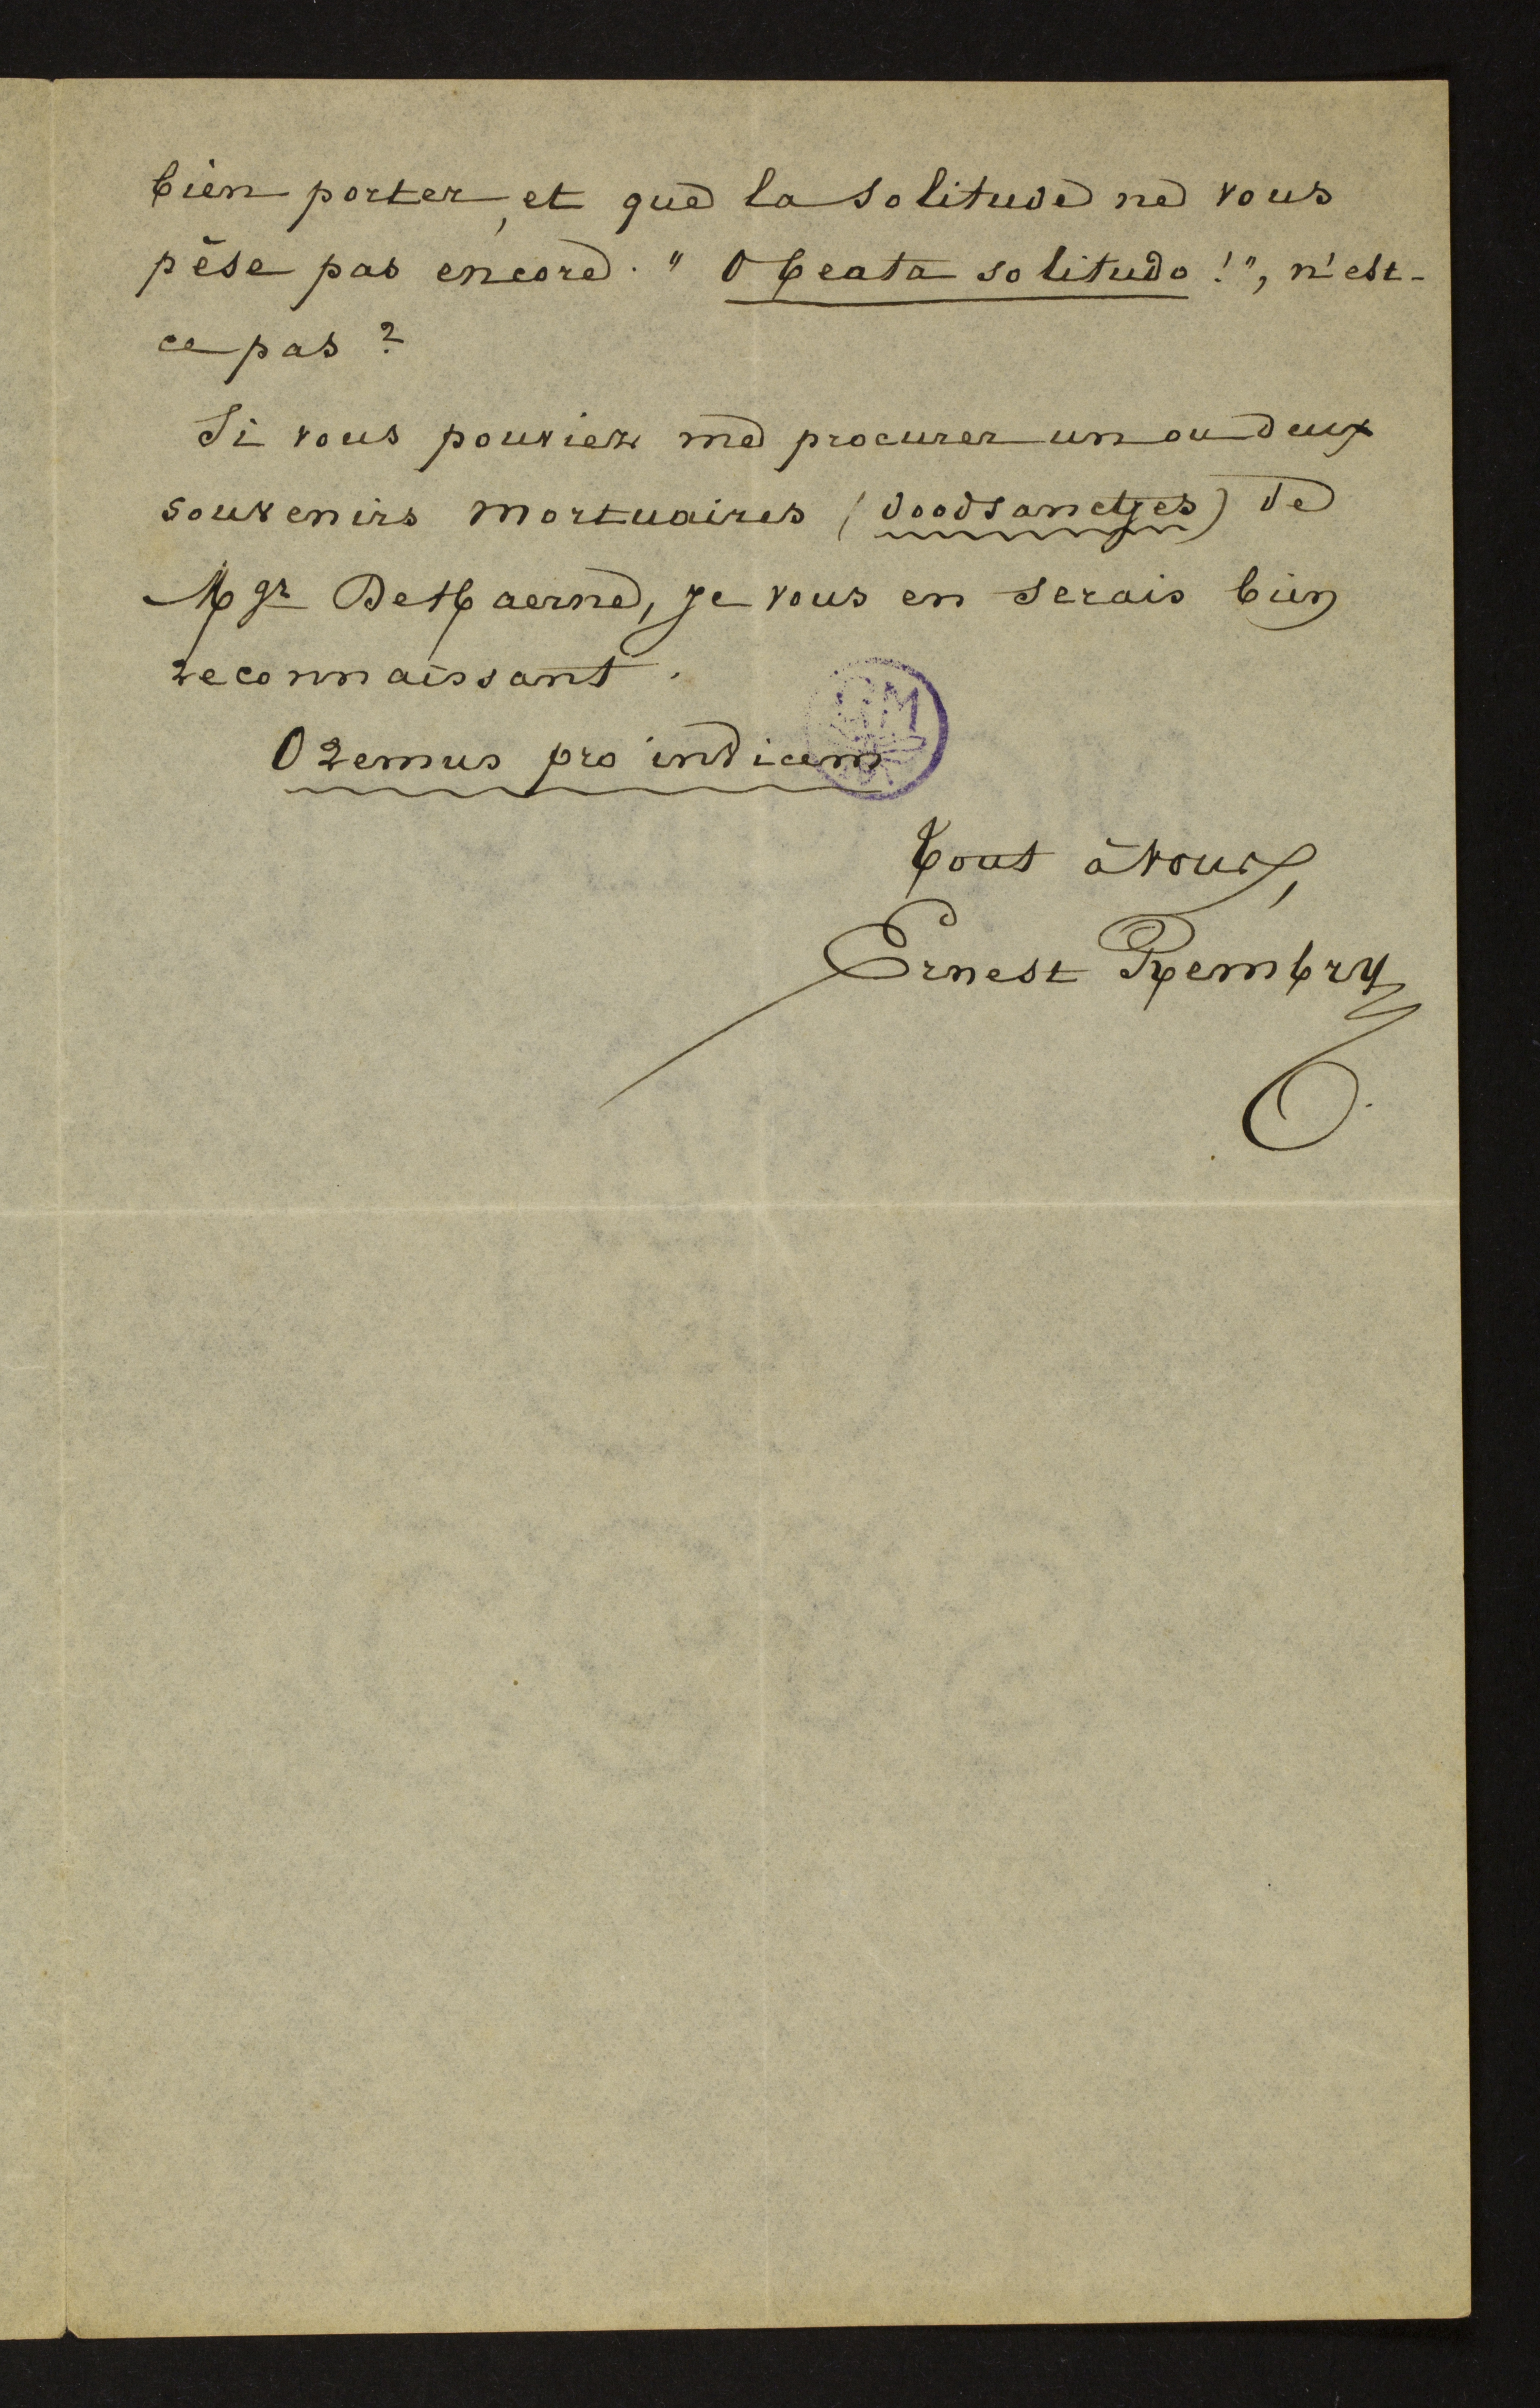 bien porter, et que la solitude ne vous
pèse pas encore. "O beata solitudo!", n'est-
ce pas?
Si vous pouviez me procurer un ou deux
souvenirs mortuaires (doodsanctjes) de
Mgr De Haerne, je vous en serais bien
reconnaissant.
Oremus pro invicem
GM
Tout à vous,
Ernest Rembry